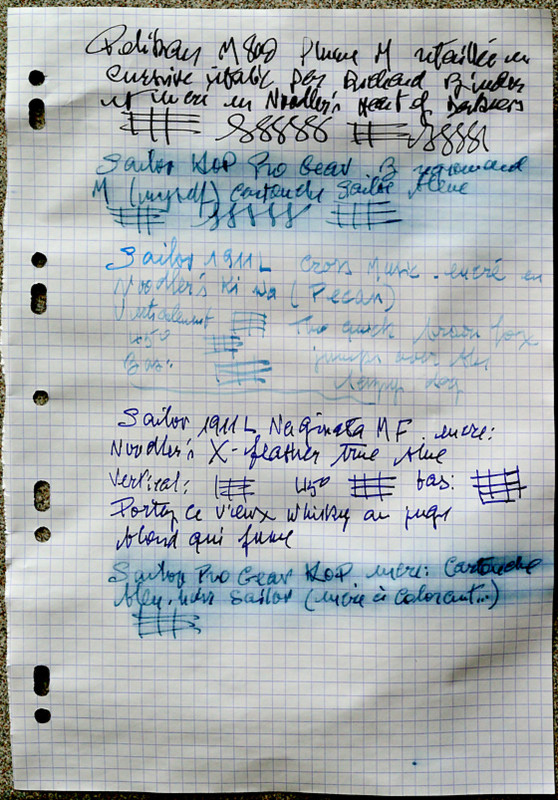 Pelikan M800 Plume M retaillée en
cursive italic par Richard Binder
et encré en Noodler's Heart of Darkness
Sailor KOP Pro Gear. B
M (mysef) cartouche Sailor bleue
Sailor 1911L Cross Music. encré en
Noodler's Ki na (Pecan)
Verticalement The quick brown fox
45° jumps over the
Bas: dog
Sailor 1911L Naginata MF. encre:
Noodler's X-feather true blue
Vertical: 45° bas:
Portez ce vieux whisky au juge
blond qui fume
Sailor Pro Gear KOP encre: Cartouche
bleu-noir Sailor (encre à colorant...)